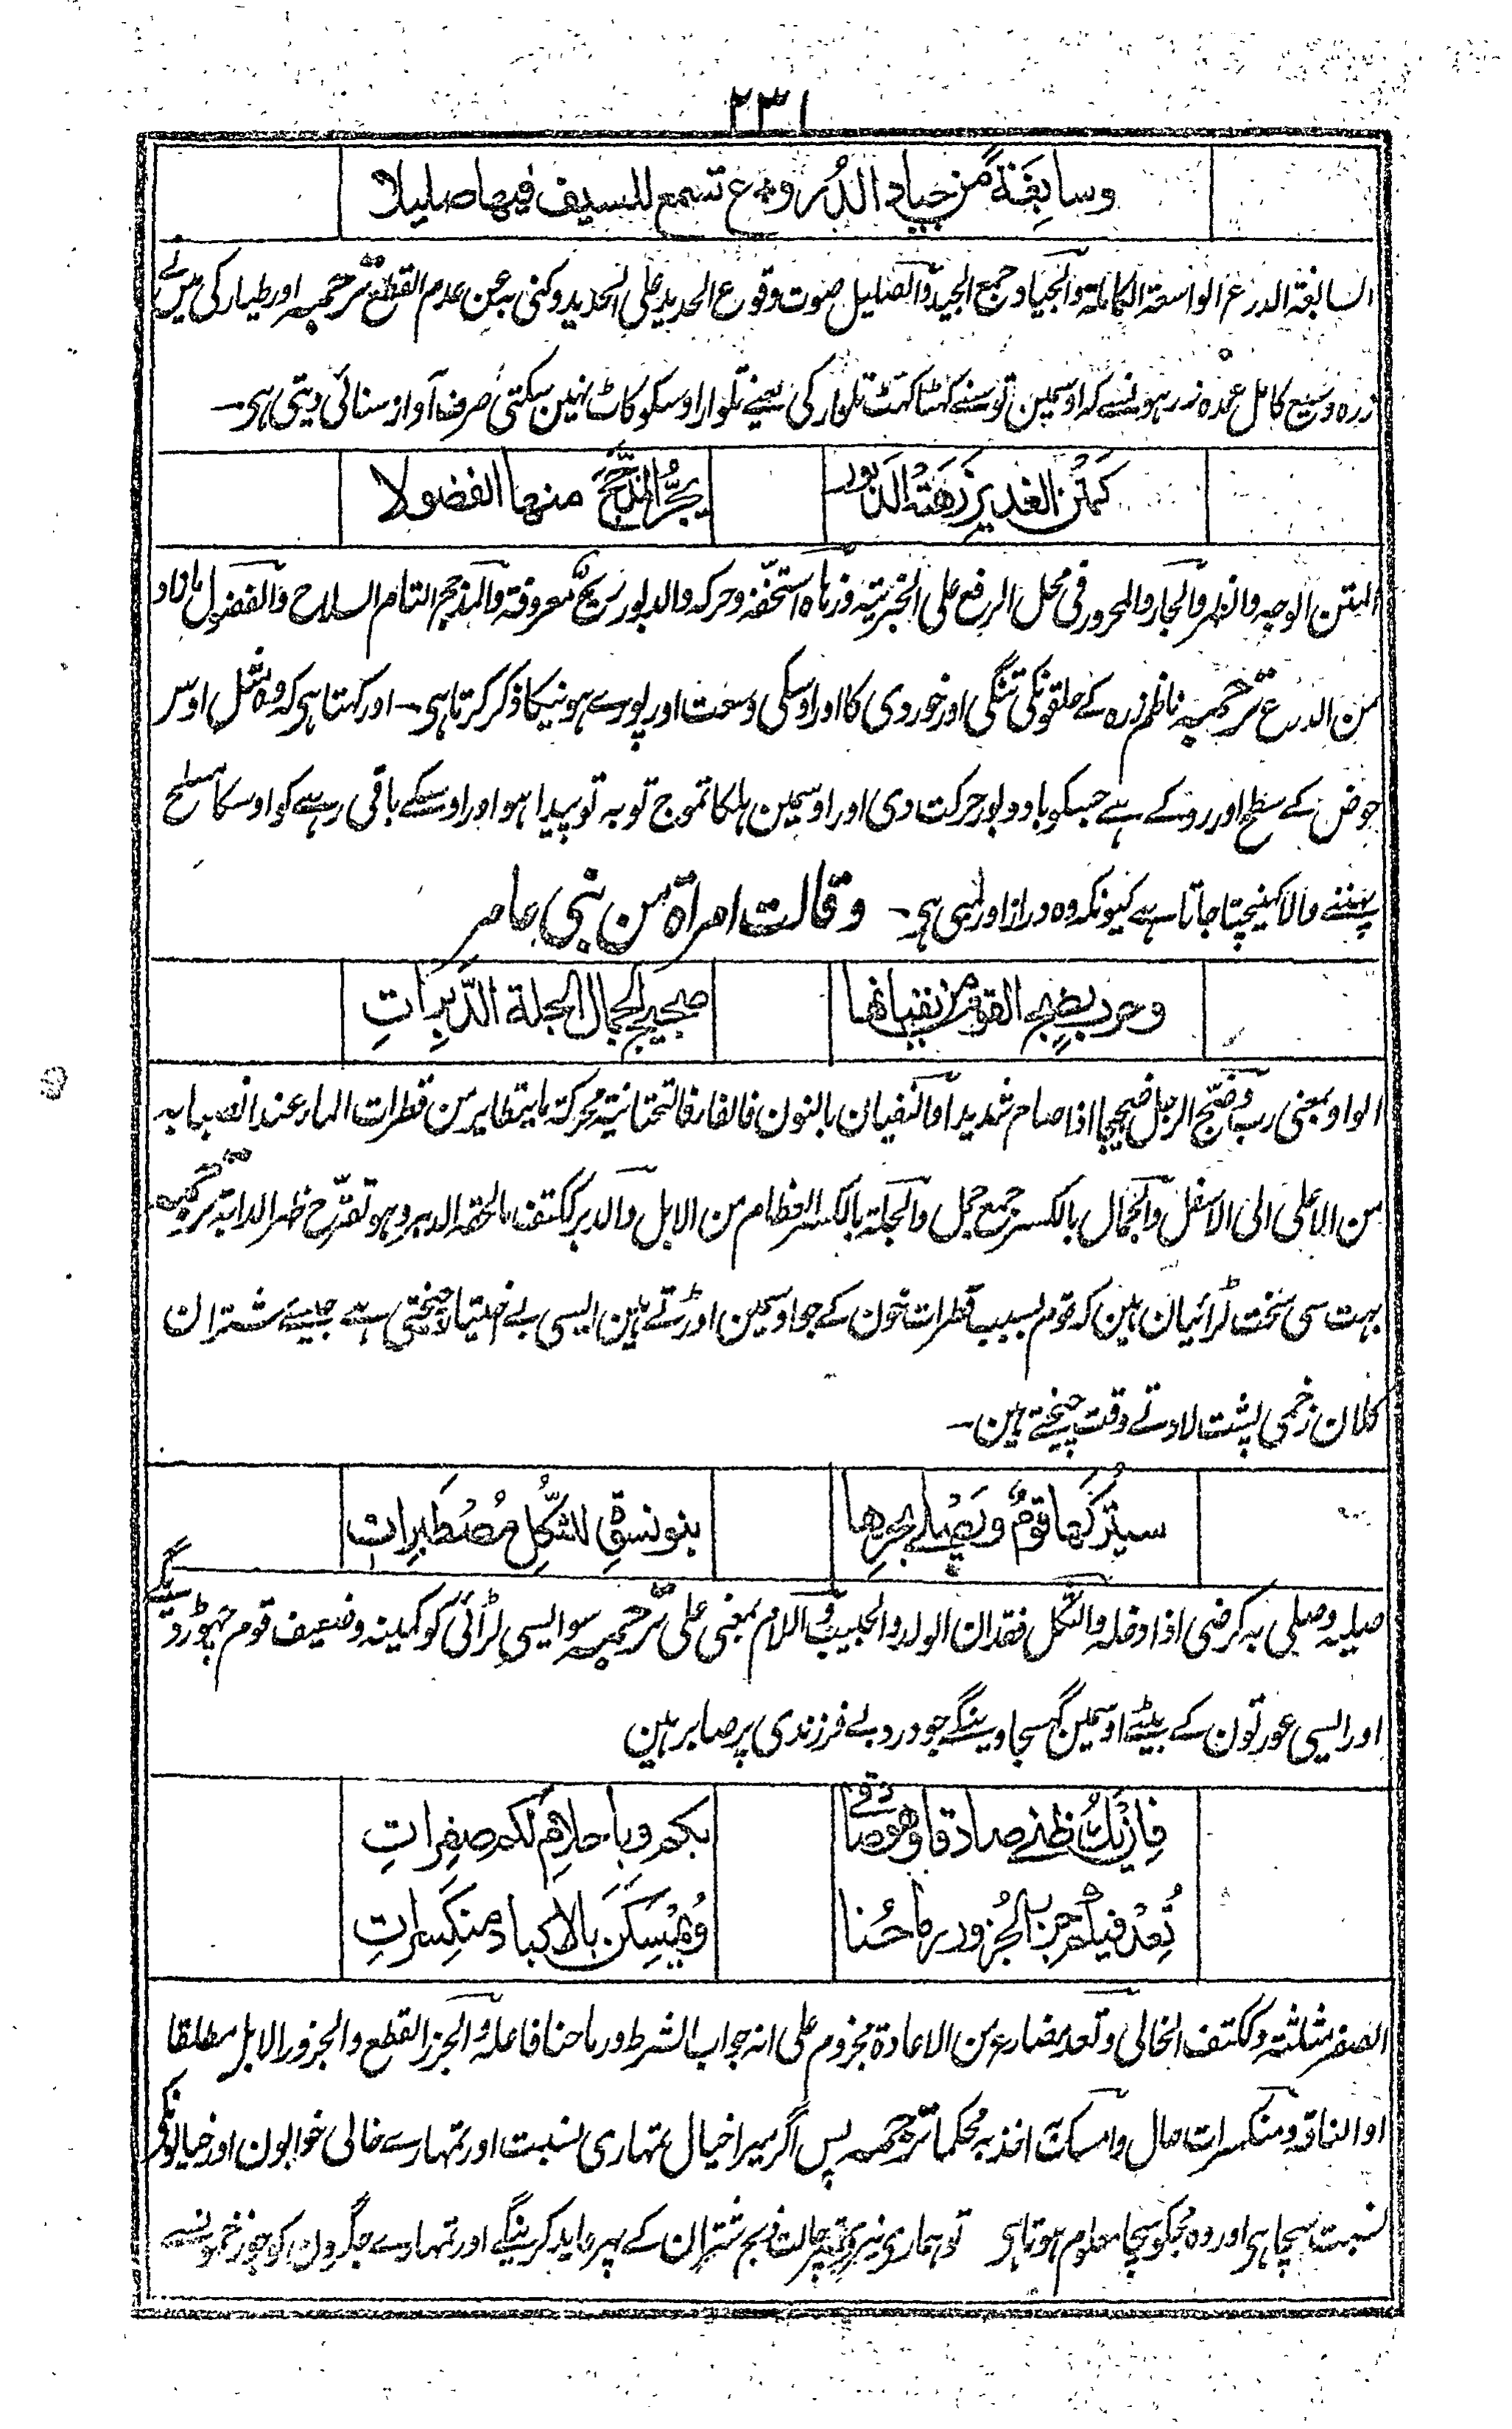 ۲۳۱
وسابغة من جياد الدروع تسمع للسيف فيها صليلا
السابغة الدرع الواسعة الكاملة والجياد جمع الجيد والصليل صوت وقوع الحديد على الحديد وكنى به عن عدم القطع ترجمہ اور طیار کی مین نے
زرہ وسیع کامل عمدہ زرہونسے کہ اوسمین توسنے کہٹاکہٹ تلوار کی یعنے تلوار اوسکو کاٹ نہین سکتی صرف آواز سنائی دیتی ہی۔
كمتن الغدير زهته الدبور يجر المدجج منها الفضولا
المتن الوجه والظهر والجار والمجرور فى محل الرفع على الخبرية وزهاه استخفه وحركه والدبور ريح معروفة والمدجج التام السلاح والفضول ما زاد
من الدرع ترجمہ ناظم زرہ کے حلقونکی تنگی اور خوردی کا اور اوسکی وسعت اور پورے ہونیکا ذکر کرتا ہی۔ اور کہتا ہی کہ وہ مثل اوس
حوض کے سطح اور روکے ہے جسکو باد دبور حرکت دی اور اوسمین ہلکا تموج توبہ تو پیدا ہوا اور اوسکے باقی رہے کو اوسکا مسلح
پہننے والا کہینچتا جاتا ہے کیونکہ وہ دراز اور لمبی ہی۔ وقالت امراة من بنى عامر
وحرب يضج القوم من نفيانها ضجيج الجمال الجلة الدبرات
الواو بمعنى رب وضج الرجل ضجيجا اذا صاح شديدا والنفيان بالنون فالفاء فالتحتانية محركة ما يتطاير من قطرات الماء عند انصبابه
من الاعلى الى الاسفل والجمال بالكسر جمع جمل والجلة بالكسر العظام من الابل والدبر ككتف ما لحقه الدبر وهو تقرح ظهر الدابة ترجمہ
بہت سی سخت لڑائیان ہین کہ قوم بسبب قطرات خون کے جو اوسمین اوڑتے ہین ایسی بے اختیار چیختی ہے جیسے شتران
کلان زخمی پشت لادتے وقت چیختے ہین۔
سيتركها قوم ويصلى بحرها بنو نسوة للثكل مصطبرات
صليه وصلى به كرضى اذا دخله والثكل فقدان الولد والحبيب واللام بمعنى على ترجمہ سو ایسی لڑائی کو کمینہ وضعیف قوم چہوڑ دینگے
اور ایسی عورتون کے بیٹے اوسمین گہسجاوینگے جو درد بے فرزندی پر صابر ہین
فان يك ظنى صادقا وهو صادقى بكم وباحلام لكم صفرات
تعد فيكم جزر الجزور رماحنا ويمسكن بالاكباد منكسرات
الصفر مثلثة وككتف الخالى وتعد مضارع من الاعادة مجزوم على انه جواب الشرط ورماحنا فاعله والجزر القطع والجزور الابل مطلقا
او الناقة ومنكسرات حال وامسك به اخذ به محكما ترجمہ پس اگر میرا خیال تمہاری نسبت اور تمہارے خالی خوابون اور خیالونکی
نسبت سچا ہی اور وہ مجکو سچا معلوم ہوتا ہی تو ہماری نیزے تمپر حالت ذبح شتران کے پہر عاید کرینگے اور تمہارے جگرون کو جو زخمونسے